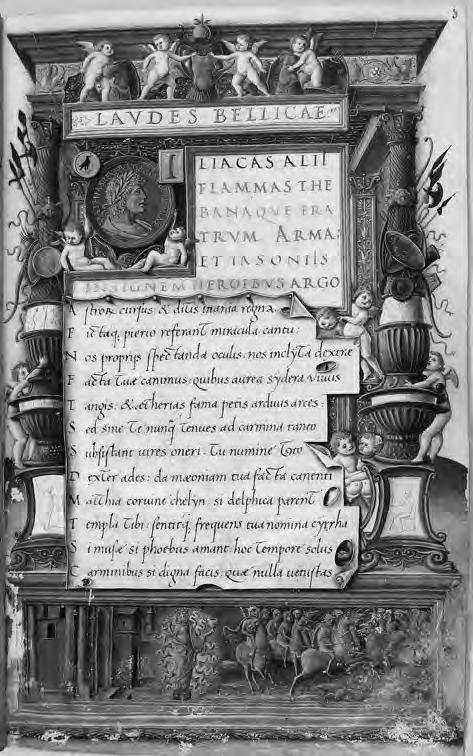 3
LAVDES BELLICAE
ILIACAS ALII
FLAMMAS THE
BANAQVE FRA
TRVM ARMA:
ET IASONIIS
INSIGNEM HEROIBVS ARGO
Astrorꝝ cursus: & ditis inania regna.
Fictaq; pierio referant miracula cantu:
Nos proprijs spectanda oculis: nos inclyta dextræ
Facta tuæ canimus: quibus aurea sydera viuus
Tangis: & ætherias fama petis arduus arces:
Sed sine Te nunq̃ Tenues ad carmina tanto
Subsistant uires oneri. Tu numine Toto
Dexter ades: da mæoniam tua facta canenti
Matthia coruine chelyn. si delphica parent
Templa Tibi: sentitq; frequens tua nomina cyrrha
Si musæ si phoebus amant: hoc Tempore solus
Carminibus si digna facis: quæ nulla uetustas